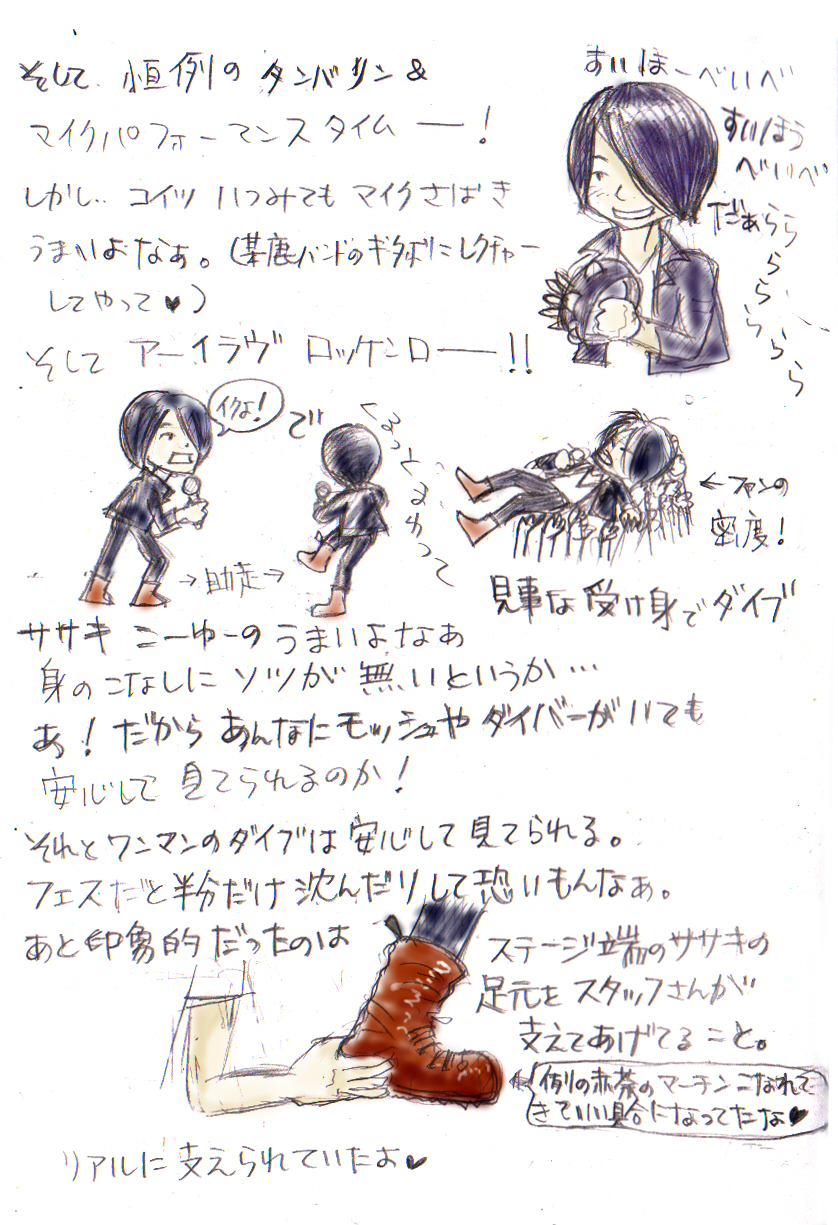 そして 恒例の タンバリン&
マイクパフォーマンスタイムー!
しかし‥ コイツ いつみても マイクさばき
うまいよなぁ。(某鹿バンドのギタボにレクチャー
してやって♥)
そして アーイラヴ ロッケンロー!!
すいほーべいべ
すいほう
べいべ
だぁららららららら
イクよ!
で
くるっとまわって
→助走→
←ファンの
密度!
見事な受け身でダイブ
ササキ こーゆーの うまいよなあ
身のこなしに ソツが 無いというか…
あ!だから あんなにモッシュや ダイバーがいても
安心して 見てられるのか!
それとワンマンのダイブは安心して見てられる。
フェスだと半分だけ沈んだりして恐いもんなぁ。
あと印象的だったのは
ステージ端のササキの
足元を スタッフさんが
支えてあげてること。
例の赤茶のマーチン こなれて
きていい具合になってたな♥
リアルに支えられていたお♥